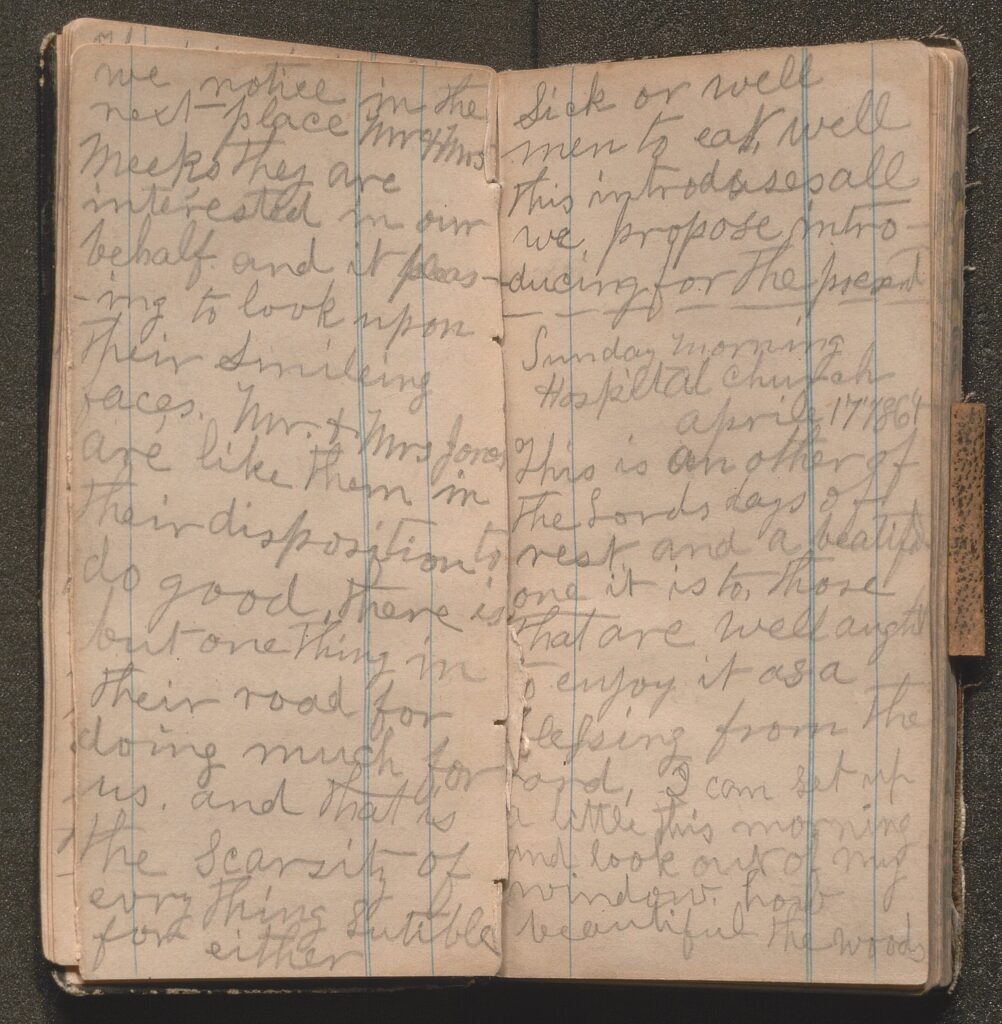 we notice in the
next place Mr & Mrs
Meeks they are
interested in our
behalf. and it pleas-
-ing to look upon
their smileing
faces. Mr. & Mrs Jones
are like them in
their disposition to
do good, there is
but one thing in
their road for
doing much for
us. and that is
the Scarsity of
evry thing sutible
for either
Sick or well
men to eat, well
this introduses all
we propose intro-
-ducing for the present
Sunday morning
Hospital church
april 17 1864
This is an other of
the Lords days of
rest and a beatiful
one it is to, those
that are well aught
to enjoy it as a
blessing from the
Lord, I can set up
a little this morning
and look out of my
window. how
beautiful the woods